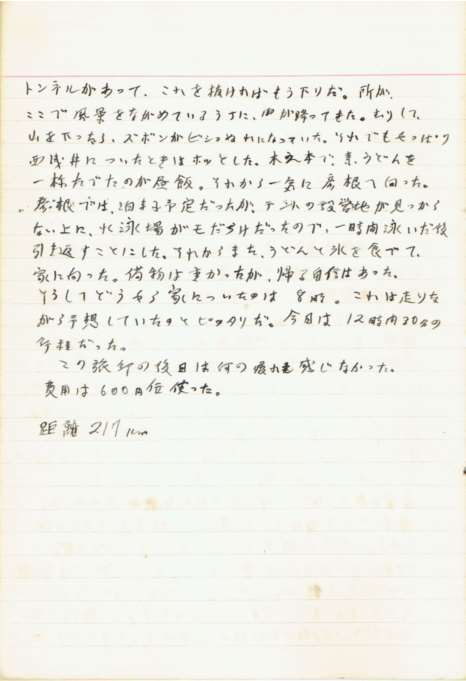 トンネルがあって、これを抜ければもう下りだ。所が、
ここで風景をながめているうちに、雨が降ってきた。むりして、
山を下ったら、ズボンがビショぬれになっていた。それでもやっぱり
西浅井についたときはホッとした。木之本で、素うどんを
一杯たべたのが昼飯。それから一気に彦根へ向った。
彦根では、泊まる予定だったが、テントの設営地が見つから
ない上に、水泳場がもだらけだったので、一時間泳いだ後
引き返すことにした。それからまた、うどんと氷を食べて、
家に向った。荷物は重かったが、帰る自信はあった。
そうしてどうやら家についたのは 8時。これは走りな
がら予想していたのとピッタリだ。今日は 12時間30分の
行程だった。
この旅行の後日は何の疲れも感じなかった。
費用は600円位使った。
距離 217km